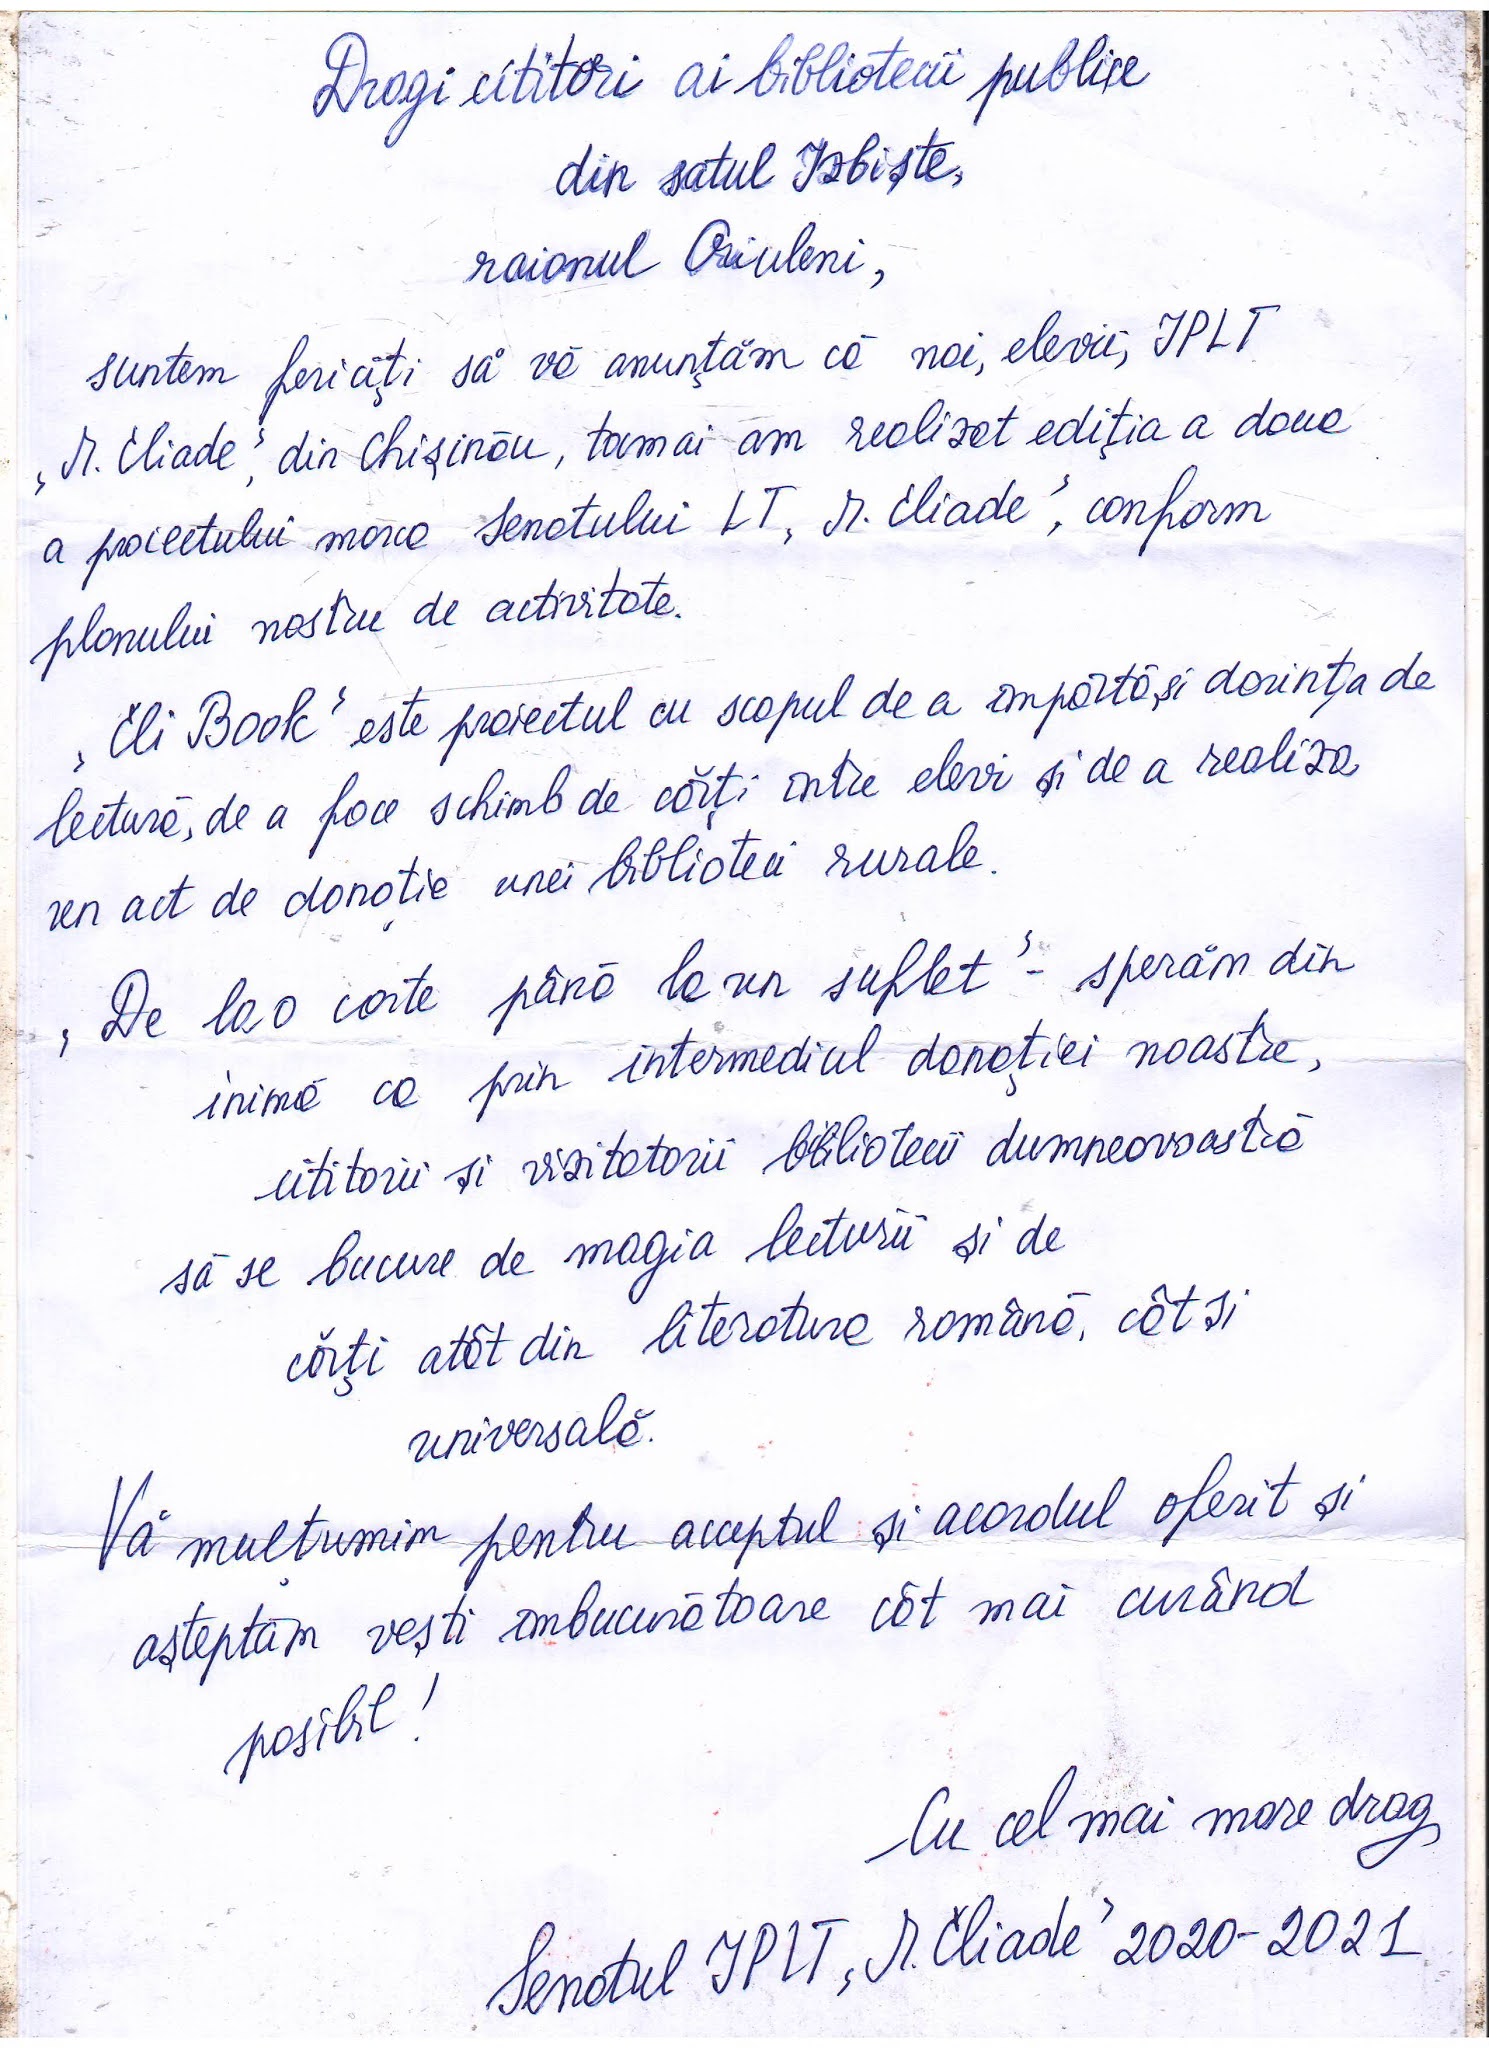 Dragi cititori ai bibliotecii publice
din satul Izbiște,
raionul Criuleni,
suntem fericiți să vă anunțăm că noi, elevii, IPLT
„M. Eliade”, din Chișinău, tocmai am realizat ediția a doua
a proiectului marca Senatului LT „M. Eliade”, conform
planului nostru de activitate.
„Eli Book” este proiectul cu scopul de a împărtăși dorința de
lectură, de a face schimb de cărți între elevi și de a realiza
un act de donație unei biblioteci rurale.
„De la o carte până la un suflet” - sperăm din
inimă ca prin intermediul donației noastre,
cititorii și vizitatorii bibliotecii dumneavoastră
să se bucure de magia lecturii și de
cărți atât din literatura română, cât și
universală.
Vă mulțumim pentru acceptul și acordul oferit și
așteptăm vești îmbucurătoare cât mai curând
posibil!
Cu cel mai mare drag,
Senatul IPLT „M. Eliade” 2020-2021